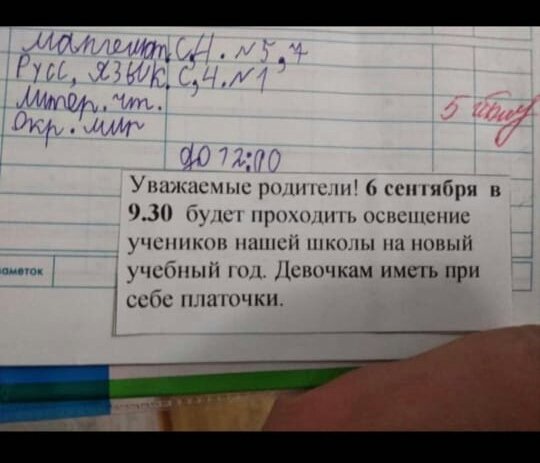 математ. с,4. №5,7
Русс, язык. с,4. №1
Литер. чт.
Окр. мир
5
до 12:00
Уважаемые родители! 6 сентября в
9.30 будет проходить освещение
учеников нашей школы на новый
учебный год. Девочкам иметь при
себе платочки.
аметок